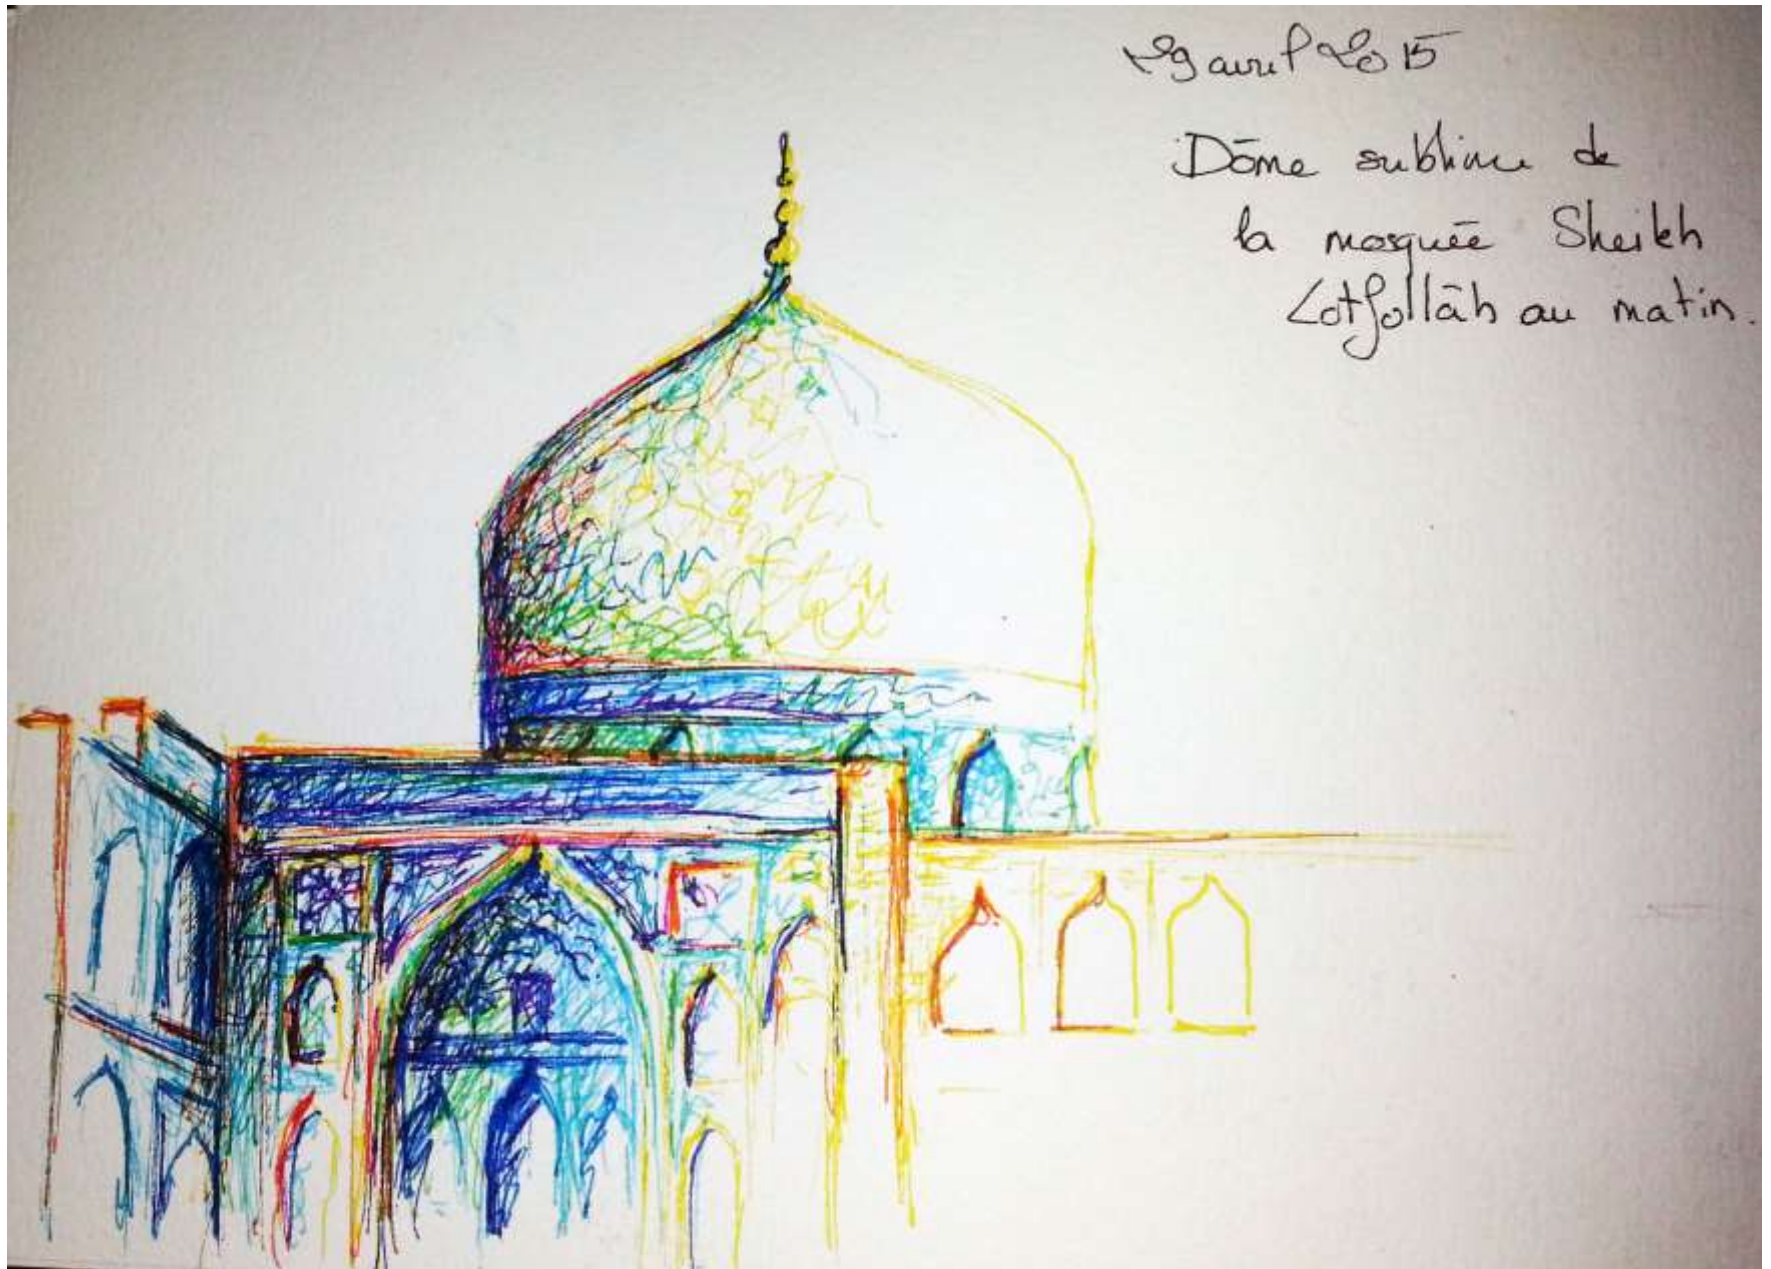 29 avril 2015
Dôme sublime de
la mosquée Sheikh
Lotfollāh au matin.